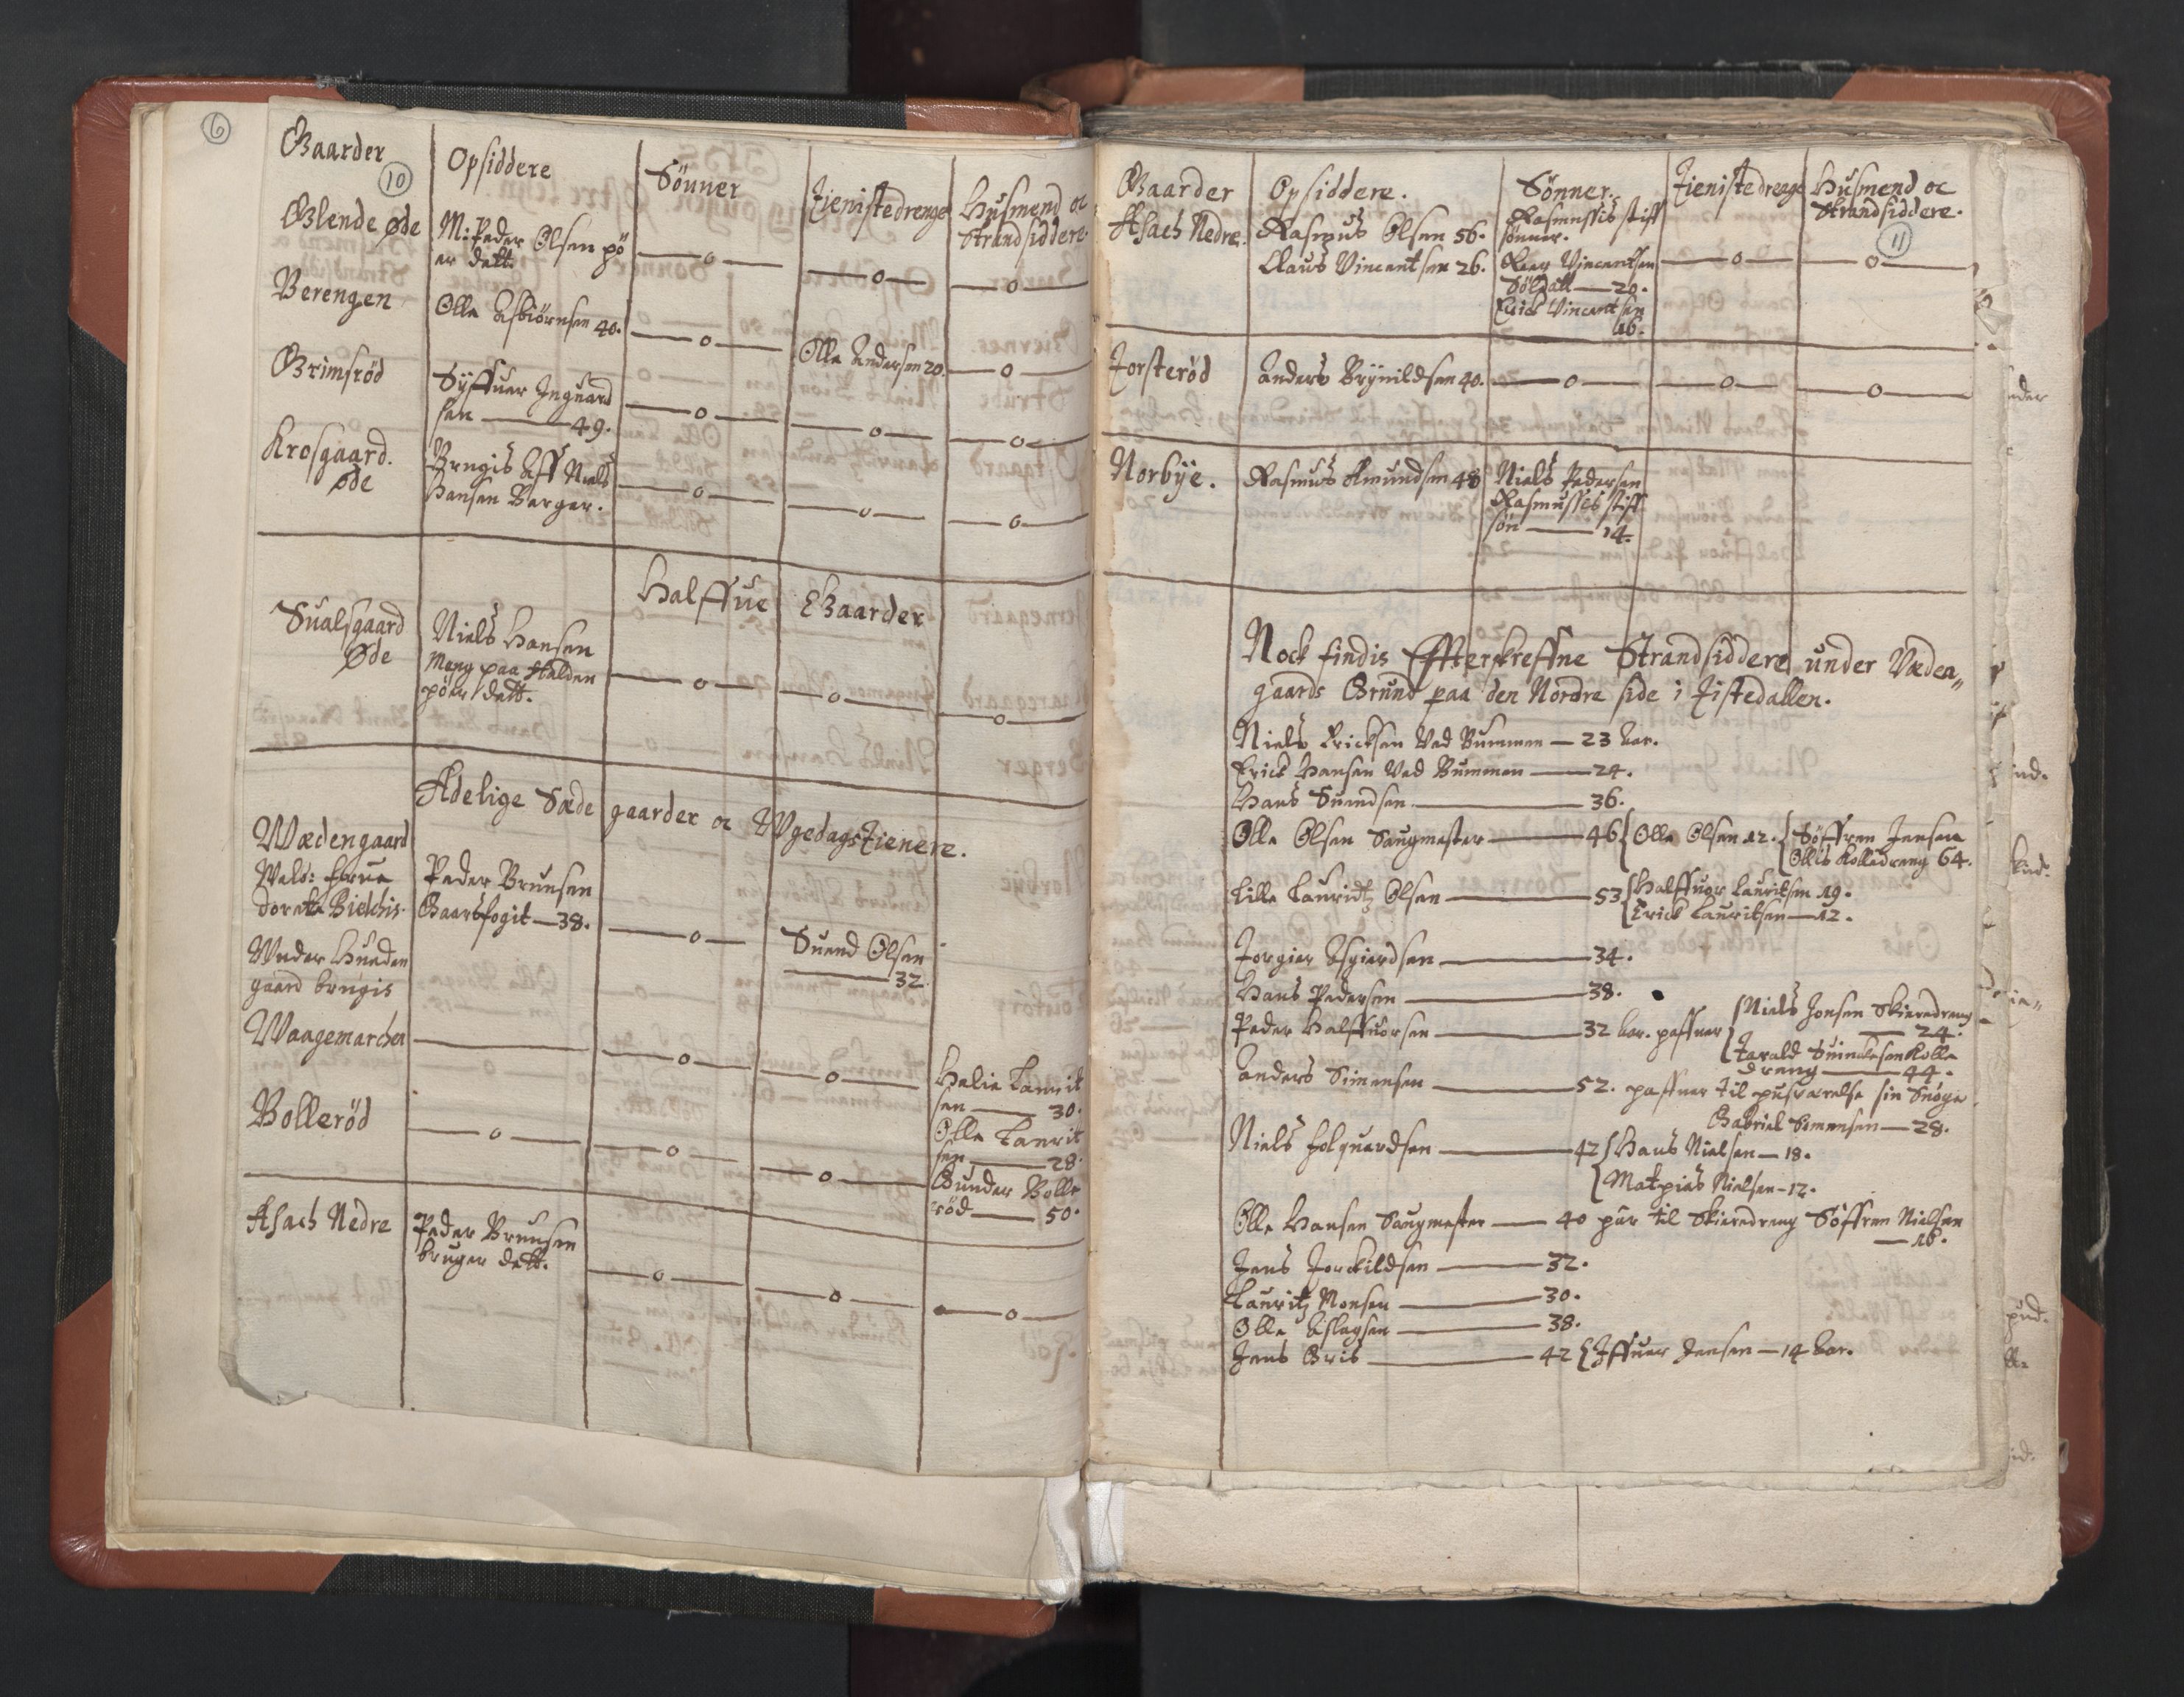 6
Gaarder
10
Opsiddere
Sönner
Tienistedrenge
Husmend oc
Strandsiddere.
Glende Øde
M: Peder Olsen pö
er dett.
—o—
—o—
—o—
Berengen
Olle Asbiörnsen 40.
—o—
Olle Andersen 20.
—o—
Grimsröd
Syffuer Inguard
sen — 49.
—o—
—o—
—o—
Krosgaard.
Øde
Brugis Aff Niels
Hansen Berger.
—o—
—o—
—o—
Halffue Gaarder
Sualsgaard
Øde
Niels Hansen
Meng paa Halden
pöer dett.
—o—
—o—
—o—
Adelige Sæde gaarder oc Wgedags Tienere.
Wædengaard
Welb: Frue
Dorete Bielchis.
Peder Brunsen
Gaardsfogit — 38.
—o—
Suend Olsen
— 32
Under Hueden
gaard brugis
Waagemarchen
—o—
—o—
Helie Laurit
sen — 30.
Olle Laurit
sen — 28.
Bolleröd
—o—
—o—
—o—
Gunder Bolle
röd — 50.
Asach Nedre
Peder Brunsen
bruger dett.
—o—
—o—
—o—
Gaarder
Opsiddere.
Sönner.
Tienistedrenge
Husmend oc
Strandsiddere.
11
Asach Nedre.
Rasmus Olsen 56.
Claus Vincentsen 26.
Rasmussis stiff
sönner.
Vincentsen
Soldatt — 20.
Erick Vincentsen
16.
—o—
—o—
Torsteröd
Anders Brynildsen 40.
—o—
—o—
—o—
Norbÿe.
Rasmus Amundsen 48
Niels Pedersen
Rasmussis stiff
sön — 14.
Nock findis Effterskreffne Strandsiddere under Væden„
gaards Grund paa den Nordre side i Tistedallen.
Niels Ericksen Ved Bummen — 23 Aar.
Erick Hansen Ved Bummen — 24.
Hans Suendsen — 36.
Olle Olsen Saugmester — 46 { Olle Olsen 12. { Söffren Jensen
Ollis Kolledreng 64.
Lille Lauridtz Olsen — 53 { Halffuor Lauritsen 19.
Erick Lauritsen — 12.
Torgier Asgierdsen — 34.
Hans Pedersen — 38.
Peder Halffuorsen — 32 Aar. haffuer { Niels Jonsen Skieredreng
— 24.
Tarald Kolle
dreng — 44.
Anders Simensen — 52. haffuer til husværelse sin Suoger
Gabriel Simensen — 28.
Niels Folquardsen — 42 { Hans Nielsen — 18.
{ Mathias Nielsen — 12.
Olle Hansen Saugmester — 40 har til Skieredreng Söffren Nielsen
— 16.
Jens Torckildsen — 32.
Lauritz Monsen — 30.
Olle Aslagsen — 38.
Jens Gris — 42 { Iffuer Jensen — 14 Aar.